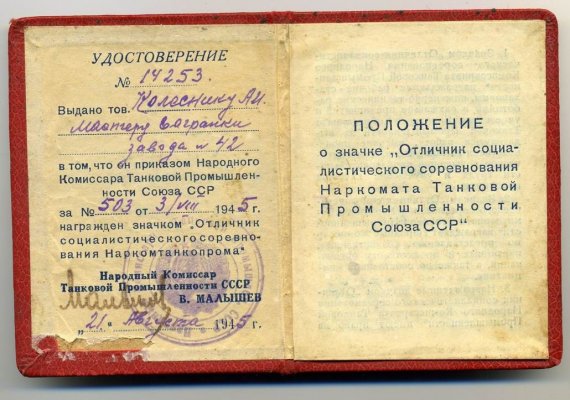 УДОСТОВЕРЕНИЕ
№ 14253.
Выдано тов. Колеснику А.И.
Мастеру
завода № 42
в том, что он приказом Народного
Комиссара Танковой Промышлен-
ности Союза ССР
за № 503 от 3/VIII 1945 г.
награжден значком „Отличник
социалистического соревно-
вания Наркомтанкопрома"
Народный Комиссар
Танковой Промышленности СССР
В. МАЛЫШЕВ
„21" Августа 1945 г.
ПОЛОЖЕНИЕ
о значке „Отличник социа-
листического соревнования
Наркомата Танковой
Промышленности
Союза ССР"